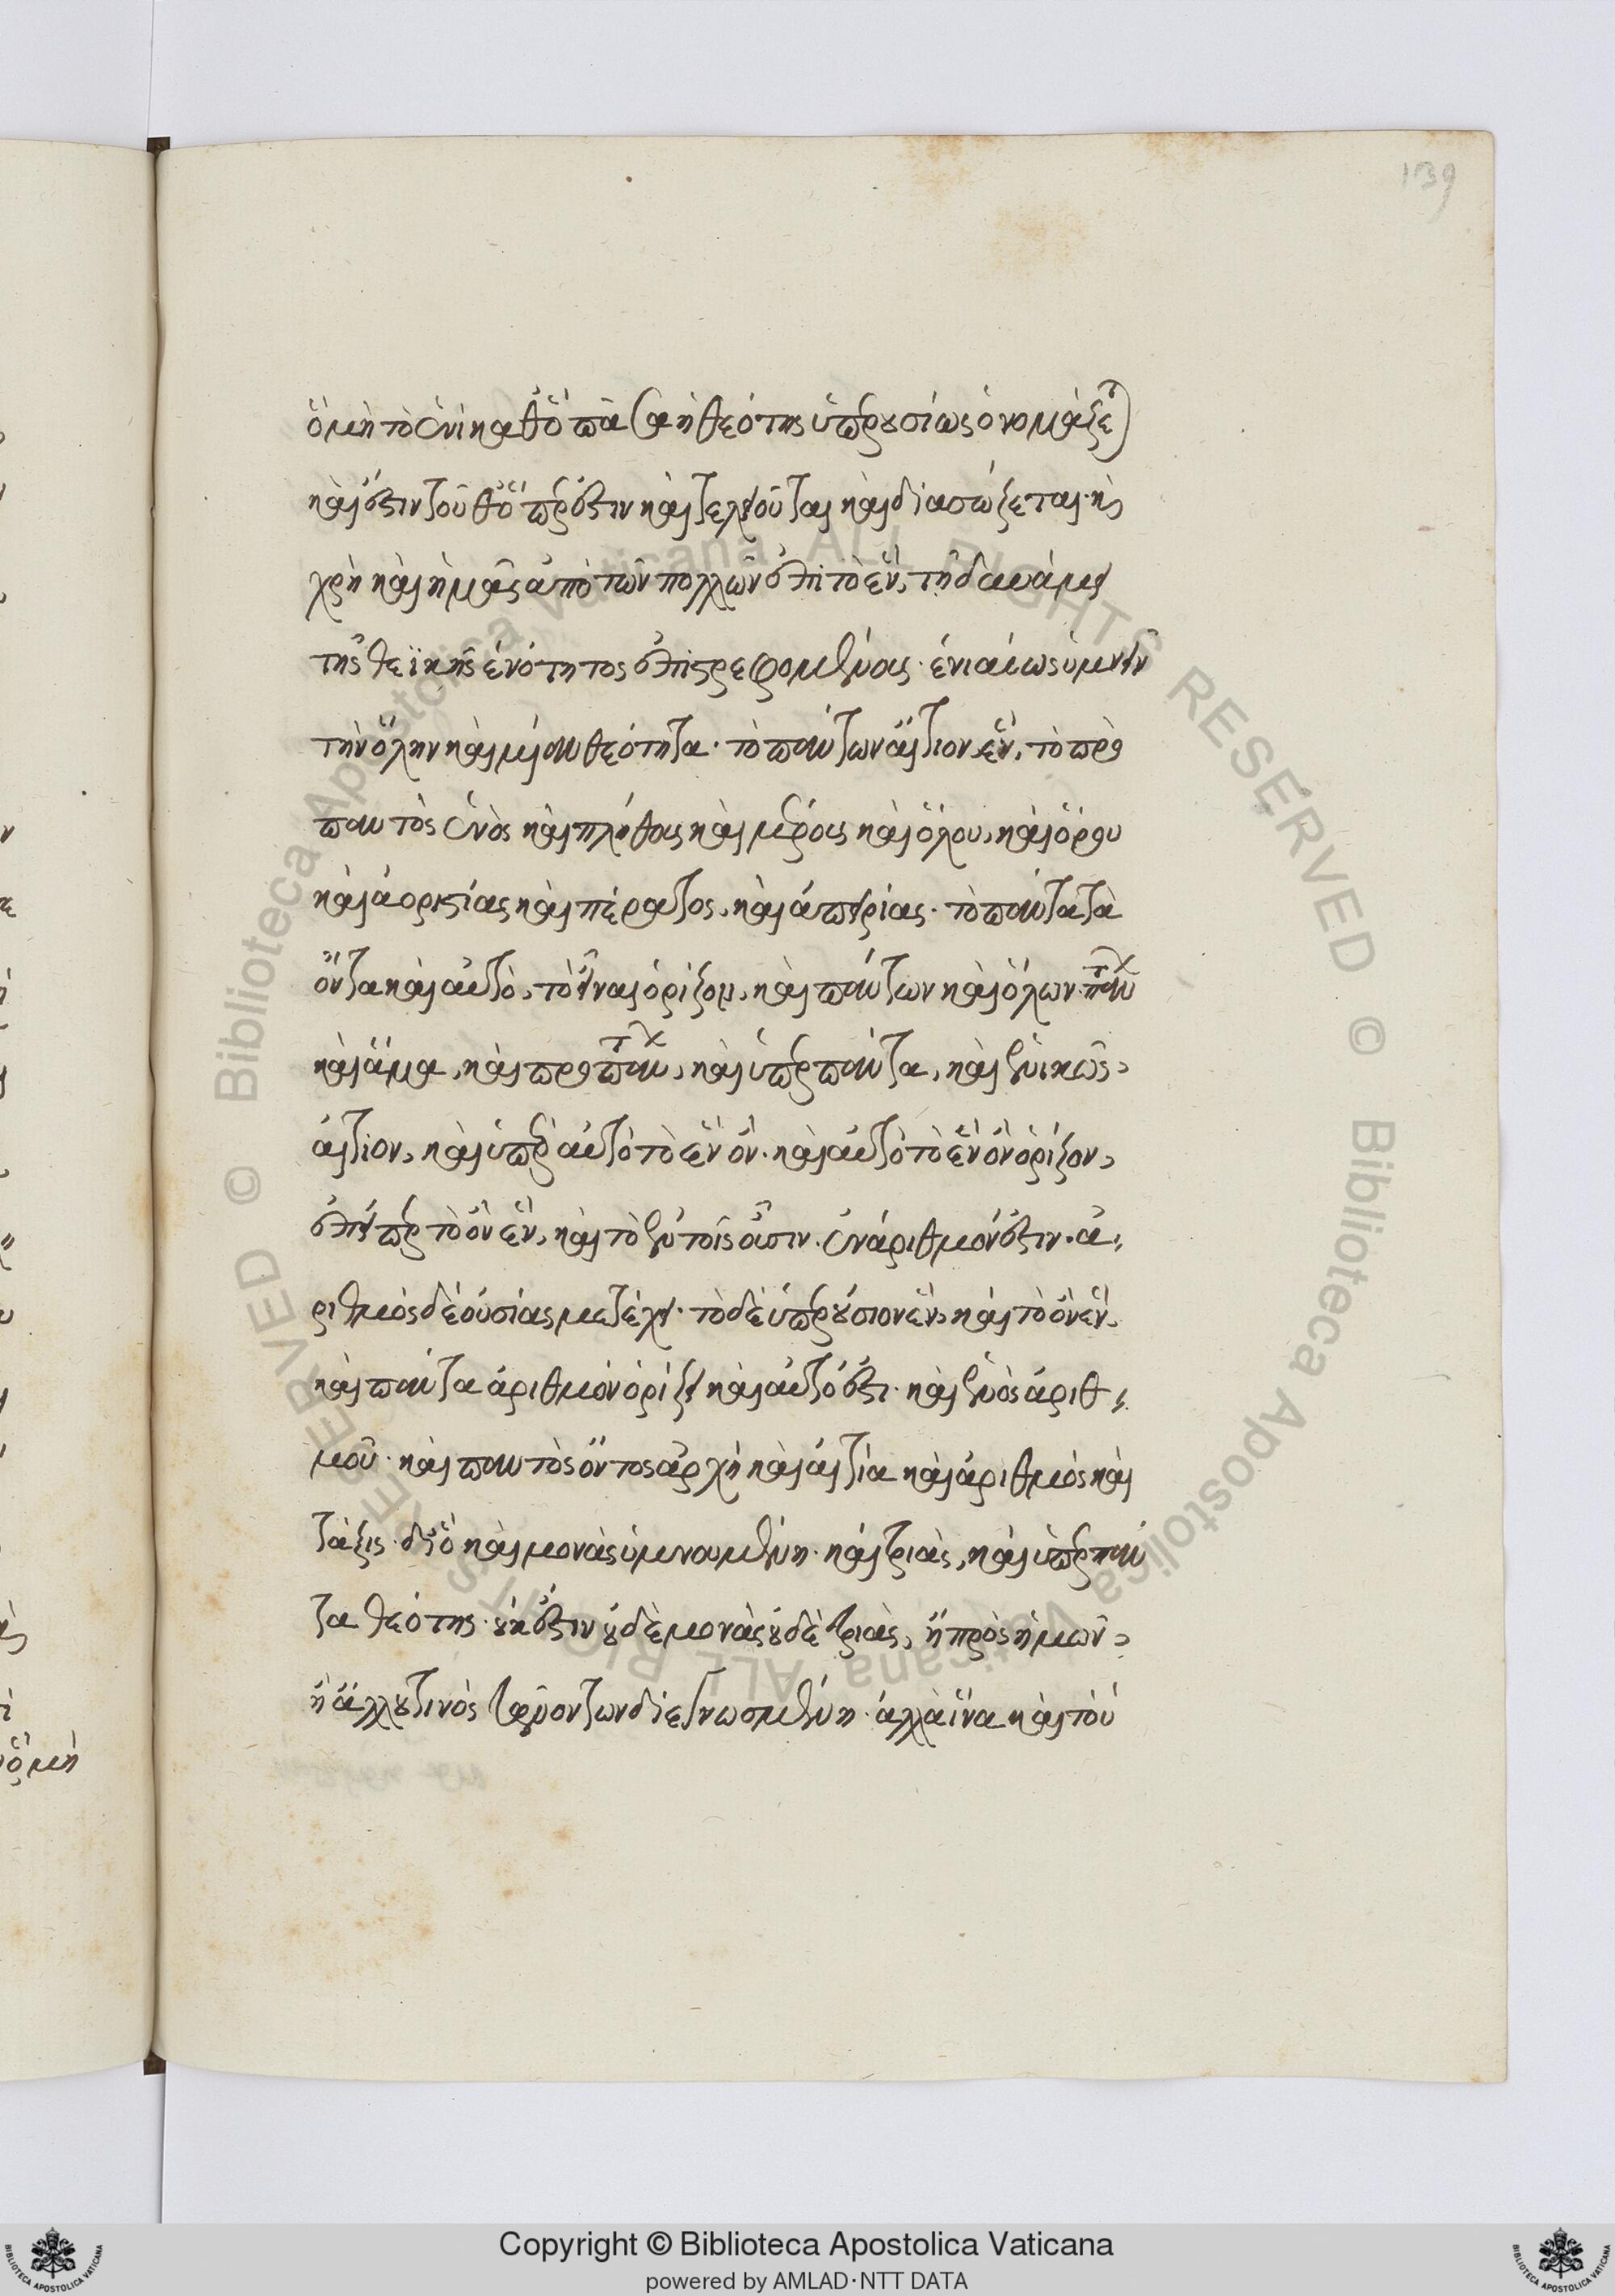 139
ὃ μὴ τὸ ἑνὶ καθ' ὃ πᾶσα ἡ θεότης ὑπερουσίως ὀνομάζεται
καὶ ἔστιν τοῦθ' ὅπερ ἐστὶν καὶ τελειοῦται καὶ διασώζεται· καὶ
χρὴ καὶ ἡμᾶς ἀπὸ τῶν πολλῶν ἐπὶ τὸ ἓν, τῇ δυνάμει
τῆς θεϊκῆς ἑνότητος ἐπιστρεφομένους· ἑνιαίως ὑμνεῖν
τὴν ὅλην καὶ μίαν θεότητα· τὸ πάντων αἴτιον ἓν, τὸ πρὸ
παντὸς ἑνὸς καὶ πλήθους καὶ μέρους καὶ ὅλου, καὶ ὅρου
καὶ ἀοριστίας καὶ πέρατος, καὶ ἀπειρίας· τὸ πάντα τὰ
ὄντα καὶ αὐτὸ, τὸ εἶναι ὁρίζον, καὶ πάντων καὶ ὅλων πάντων
καὶ ἅμα, καὶ πρὸ πάντων, καὶ ὑπὲρ πάντα, καὶ ἑνικῶς
αἴτιον, καὶ ὑπὲρ αὐτὸ τὸ ἓν ὄν· καὶ αὐτὸ τὸ ἓν ὂν ὁρίζον,
ἐπείπερ τὸ ὂν ἓν, καὶ τὸ ἐν τοῖς οὖσιν· ἐνάριθμόν ἐστιν· ἀ
ριθμὸς δὲ οὐσίας μετέχει· τὸ δὲ ὑπερούσιον ἓν, καὶ τὸ ὂν ἓν,
καὶ πάντα ἀριθμὸν ὁρίζει καὶ αὐτό ἐστι· καὶ ἑνὸς ἀριθ
μοῦ· καὶ παντὸς ὄντος ἀρχὴ καὶ αἰτία καὶ ἀριθμὸς καὶ
τάξις· διὸ καὶ μονὰς ὑμνουμένη· καὶ τριὰς, καὶ ὑπὲρ πάν
τα θεότης· οὐκ ἔστιν οὐδὲ μονὰς οὐδὲ τριὰς, ἢ πρὸς ἡμῶν,
ἢ ἄλλου τινὸς τῶν ὄντων διεγνωσμένη· ἀλλὰ ἵνα καὶ τὸ ὑ
Copyright © Biblioteca Apostolica Vaticana
powered by AMLAD·NTT DATA